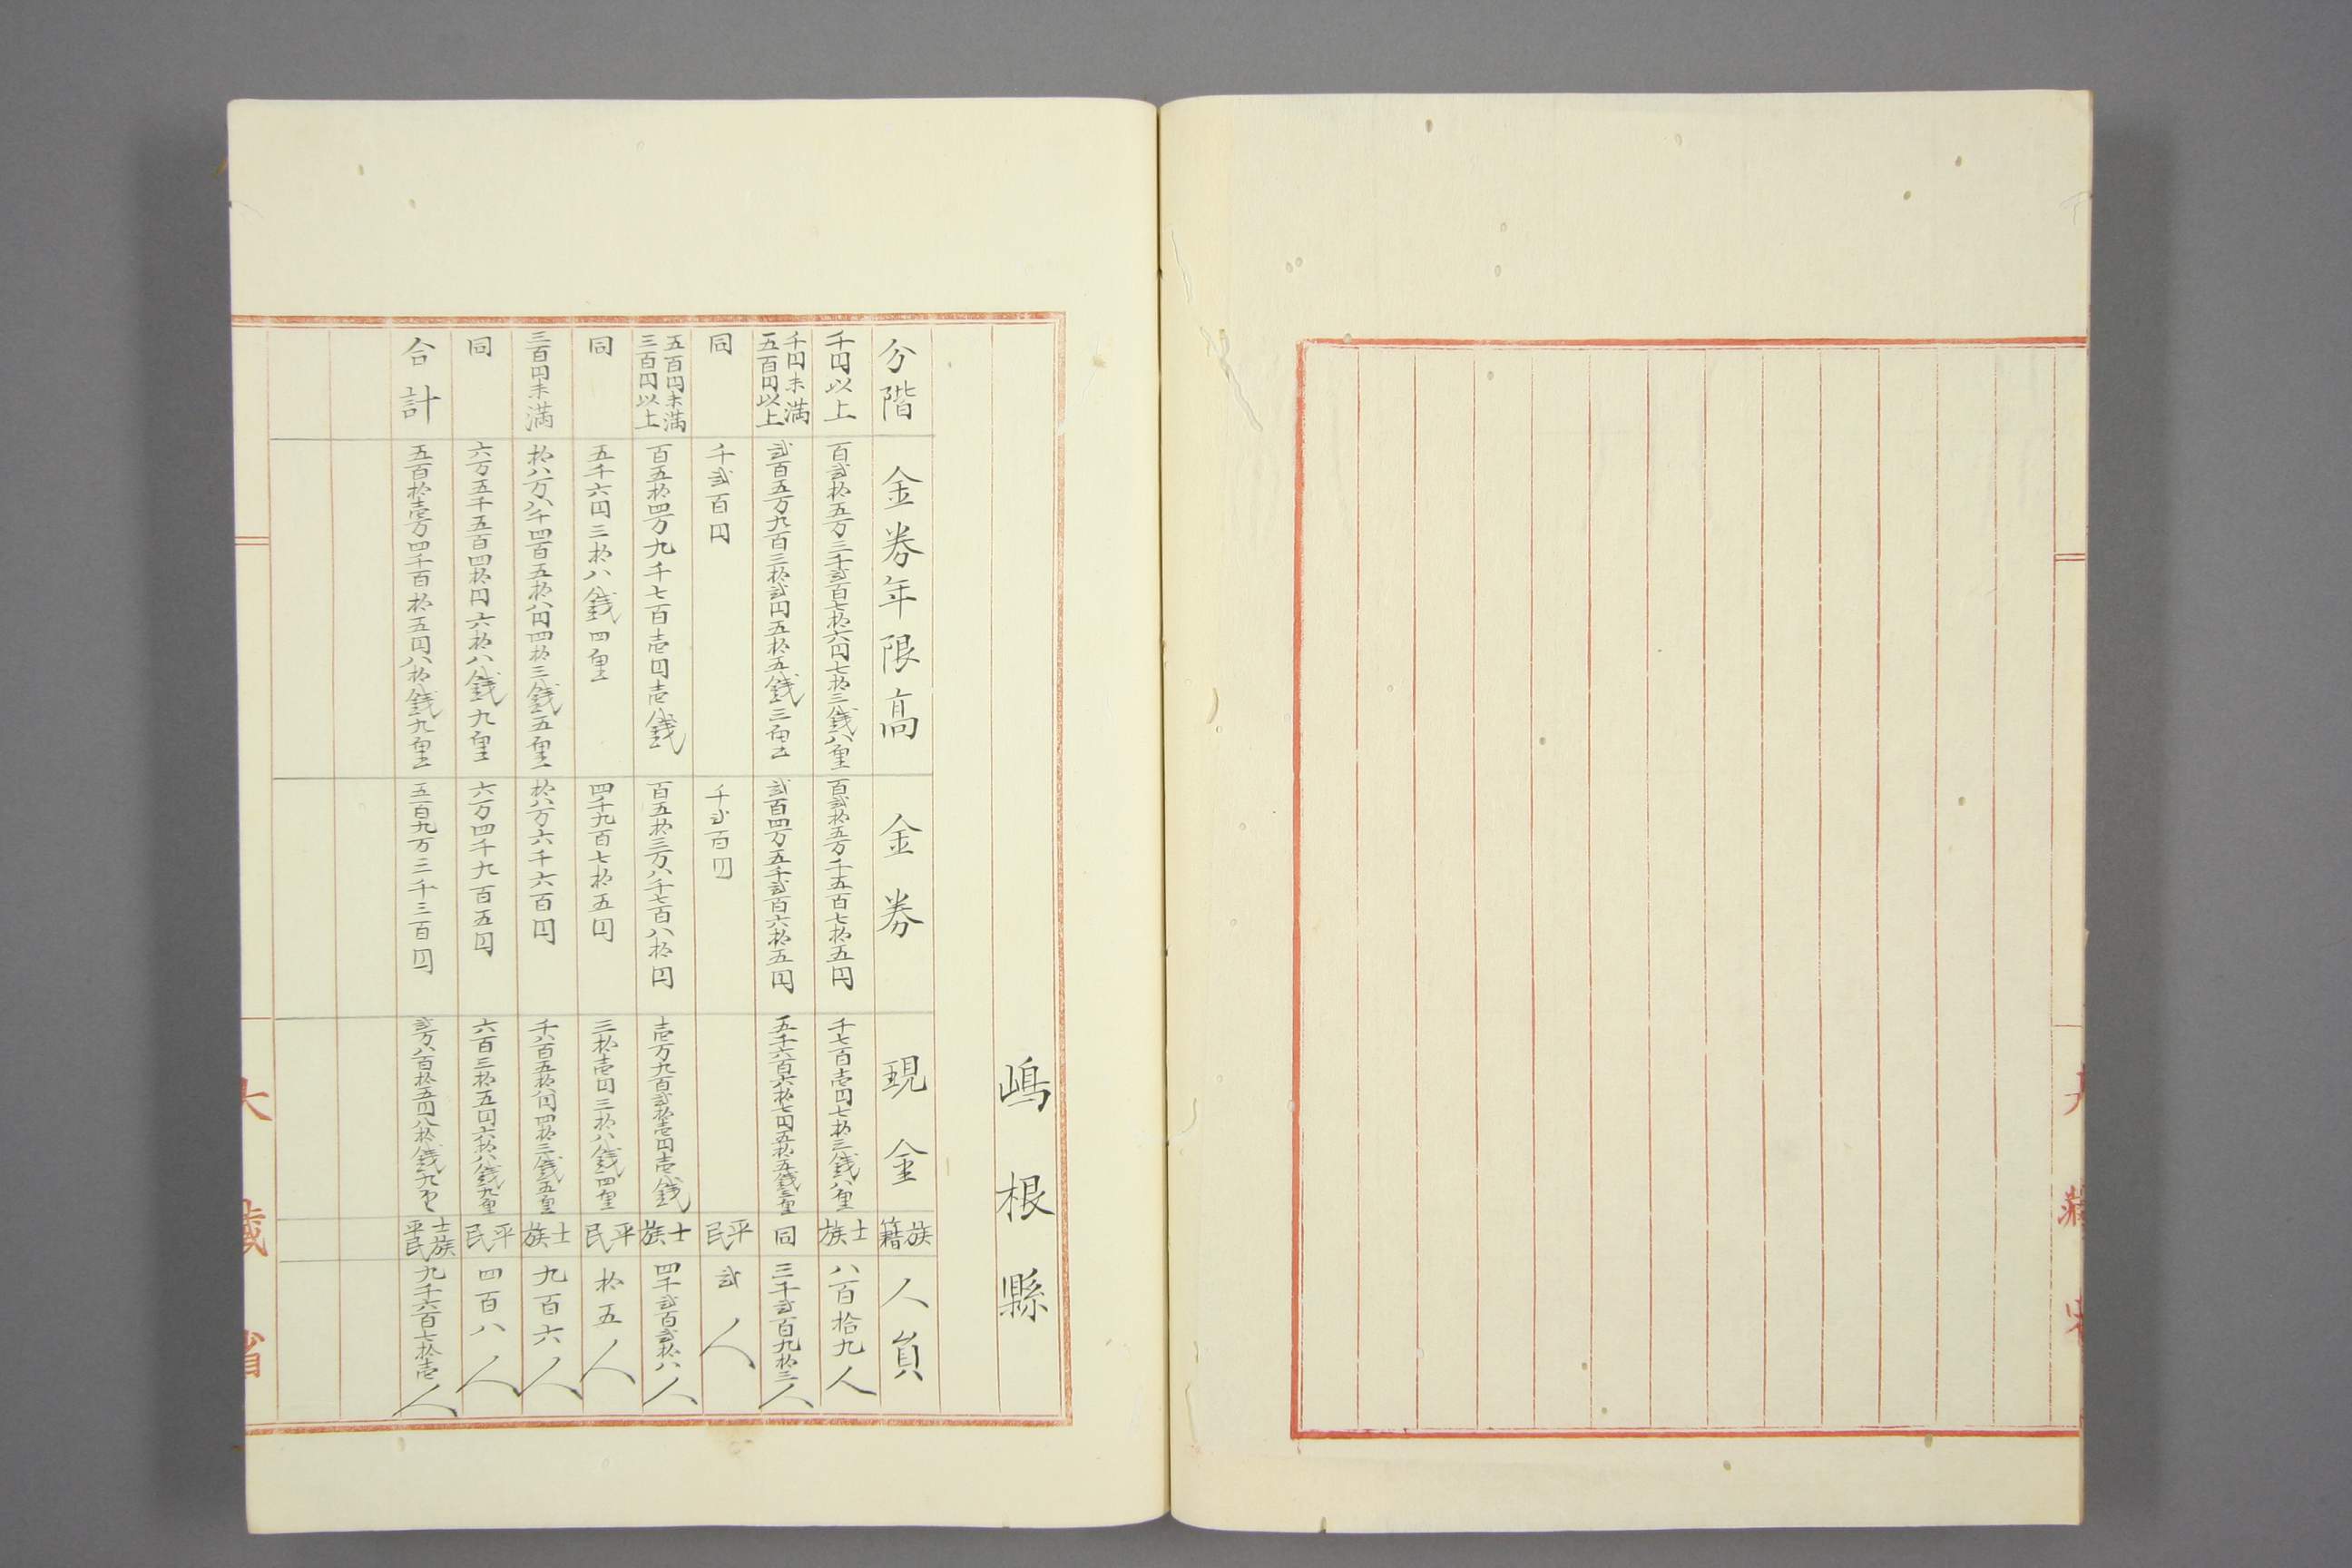 嶋根縣
分階 金券年限高 金券 現金 族籍 人員
千円以上 百弐拾五万三千弐百七拾六円七拾三銭八厘 百弐拾五万千五百七拾五円 千七百壱円七拾三銭八厘 士族 八百拾九人
千円未満五百円以上 弐百五万九百三拾弐円五拾五銭三厘 弐百四万五千弐百六拾五円 五千六百六拾七円五拾五銭三厘 同 三千弐百九拾三人
同 千弐百円 千弐百円 平民 弐人
五百円未満三百円以上 百五拾四万九千七百壱円壱銭 百五拾三万八千七百八拾円 壱万九百弐拾壱円壱銭 士族 四千弐百弐拾八人
同 五千六円三拾八銭四厘 四千九百七拾五円 三拾壱円三拾八銭四厘 平民 拾五人
三百円未満 拾八万八千四百五拾八円四拾三銭五厘 拾八万六千六百円 千八百五拾八円四拾三銭五厘 士族 九百六人
同 六万五千五百四拾円六拾八銭九厘 六万四千九百五円 六百三拾五円六拾八銭九厘 平民 四百八人
合計 五百拾壱万四千百拾五円八拾銭九厘 五百九万三千三百円 弐万八百拾五円八拾銭九厘 士族平民 九千六百七拾壱人
大藏省